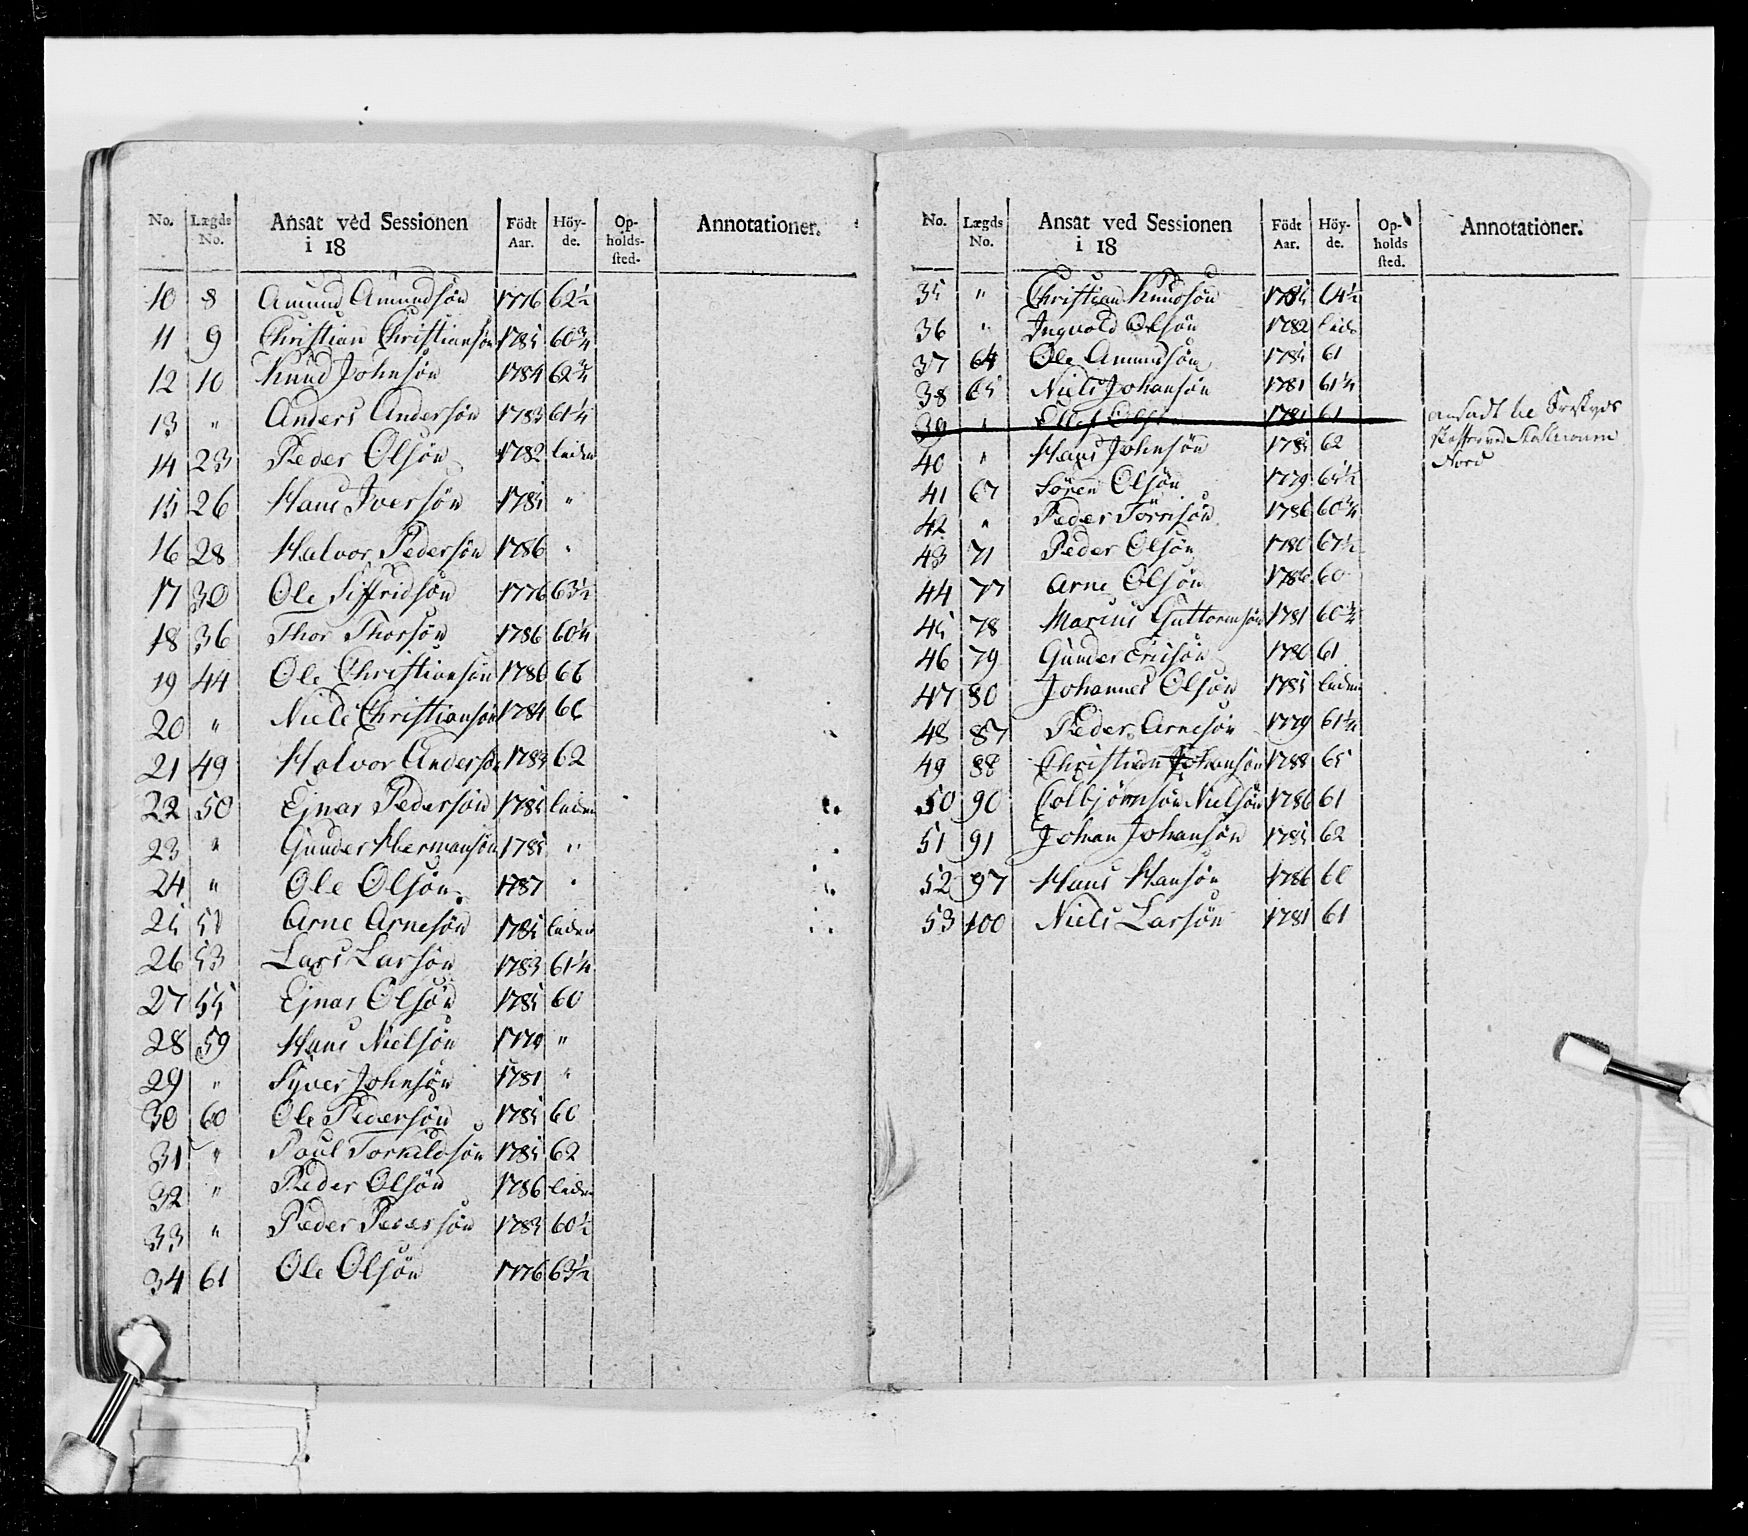 No. Lægds No. Ansat ved Sessionen i 18 Födt Aar. Höy-de. Op-holds-sted. Annotationer.
10 8 Amund Amundsön 1776 62½
11 9 Christian Christiansön 1785 60¾
12 10 Knud Johnsön 1784 62¾
13 " Anders Andersön 1783 61¼
14 23 Peder Olsön 1782 liden
15 26 Hans Iversön 1785 "
16 28 Halvor Pedersön 1786 "
17 30 Ole Siffridsön 1776 63½
18 36 Thor Thorsön 1786 60¼
19 44 Ole Christiansön 1786 66
20 " Niels Christiansön 1784 66
21 49 Halvor Andersön 1783 62
22 50 Ejnar Pedersön 1785 liden
23 " Gunder Hermansön 1785 "
24 " Ole Olsön 1787 "
25 51 Arne Arnesön 1785 liden
26 53 Lars Larsön 1783 61¼
27 55 Ejnar Olsön 1785 60
28 59 Hans Nielsön "
29 " Syver Johnsön 1781 "
30 60 Ole Pedersön 1785 60
31 " Poul Torkildsön 1785 62
32 " Peder Olsön 1786 liden
33 " Peder Pedersön 1783 60½
34 61 Ole Olsön 1776 63½
No. Lægds No. Ansat ved Sessionen i 18 Födt Aar. Höy-de. Op-holds sted. Annotationer.
35 " Christian Knudsön 1785 64½
36 " Ingvold Olsön 1782 liden
37 64 Ole Amundsön 1785 61
38 65 Niels Johansön 1781 61¼
39 " Olsön 1781 61 ansadt
40 " Hans Johnsön 1785 62 Nord
41 67 Sören Olsön 1779 65½
42 " Peder Törrisön 1786 60¾
43 71 Peder Olsön 1786 67½
44 77 Arne Olsön 1786 60
45 78 Marius Guttormsön 1781 60¾
46 79 Gunder Ericsön 1786 61
47 80 Johannes Olsön 1785 liden
48 87 Peder Arnesön 1779 61¼
49 88 Christian Johansön 1788 65
50 90 Colbjörnsön Nielsön 1786 61
51 91 Johan Johansön 1785 62
52 97 Hans Hansön 1786 66
53 100 Niels Larsön 1781 61